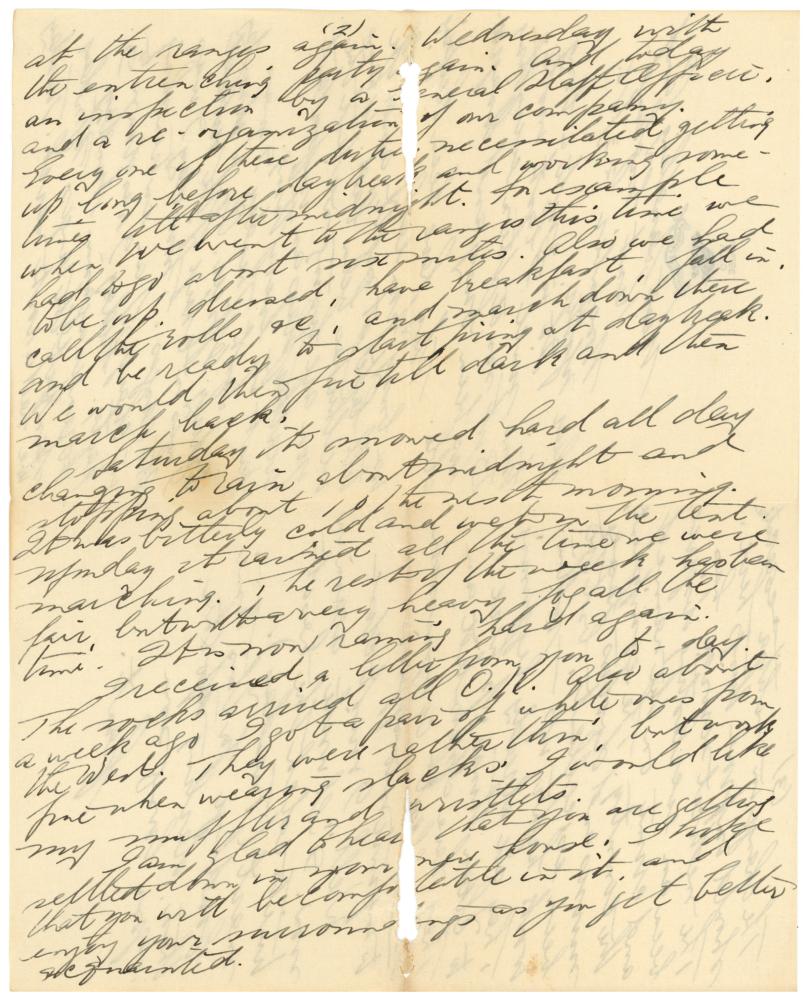 (2)
at the ranges again. Wednesday with
the entrenching party again. And today
an inspection by a General Staff Officer.
and a re-organization of our company.
Every one of these duties necessitated getting
up long before daybreak and working some-
times till after midnight. For example
when we went to the ranges this time we
had to go about six miles. Also we had
to be up, dressed, have breakfast, fall in,
call the rolls &c, and march down there
and be ready to start firing at daybreak.
We would then fire till dark and then
march back.
Saturday it snowed hard all day
changing to rain about midnight and
stopping about 10 the next morning.
It was bitterly cold and wet in the tent.
Monday it rained all the time we were
marching. The rest of the week has been
fair, but with a very heavy fog all the
time. It is now raining hard again.
I received a letter from you to-day.
The socks arrived all O.K. Also about
a week ago I got a pair of white ones from
the West. They were rather thin, but work
fine when wearing slacks. I would like
my muffler and wristlets.
I am glad to hear that you are getting
settled down in your new house. I hope
that you will be comfortable in it, and
enjoy your surroundings as you get better
acquainted.